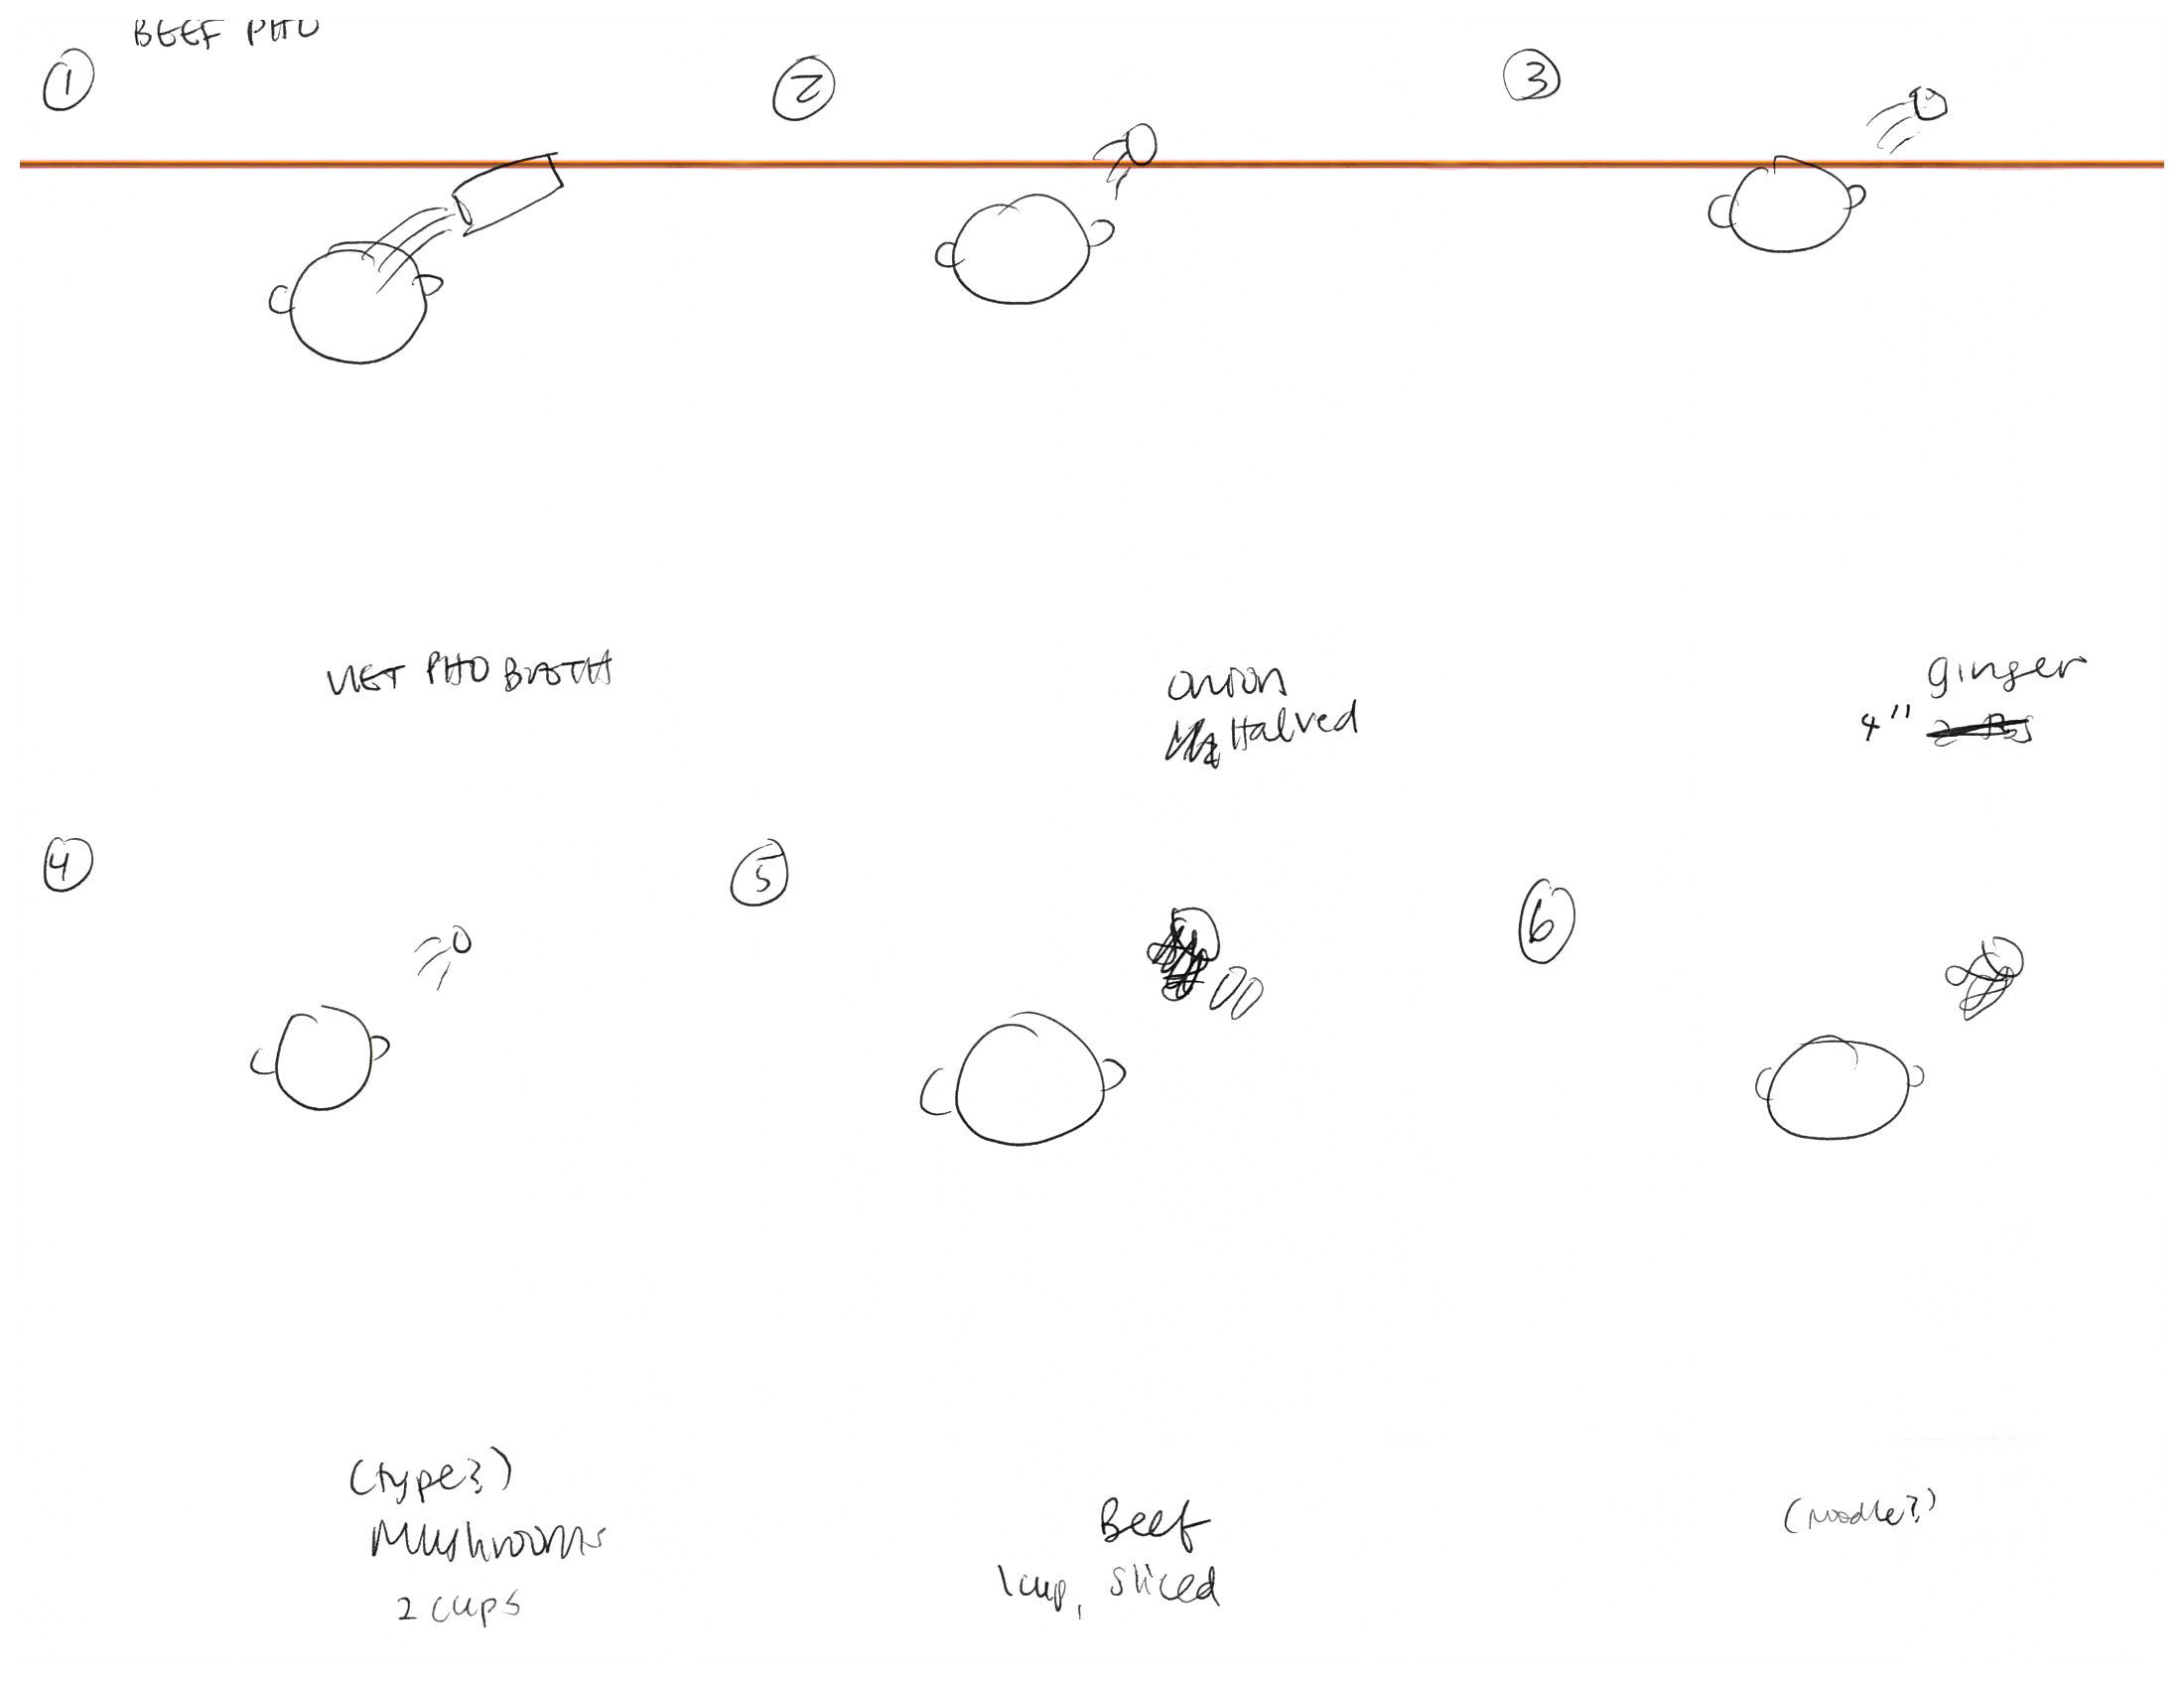 BEEF PHO
1
2
3
VIET PHO BROTH
onion
Halved
ginger
4"
4
5
6
(type?)
Mushrooms
2 cups
Beef
1 cup, sliced
(noodle?)